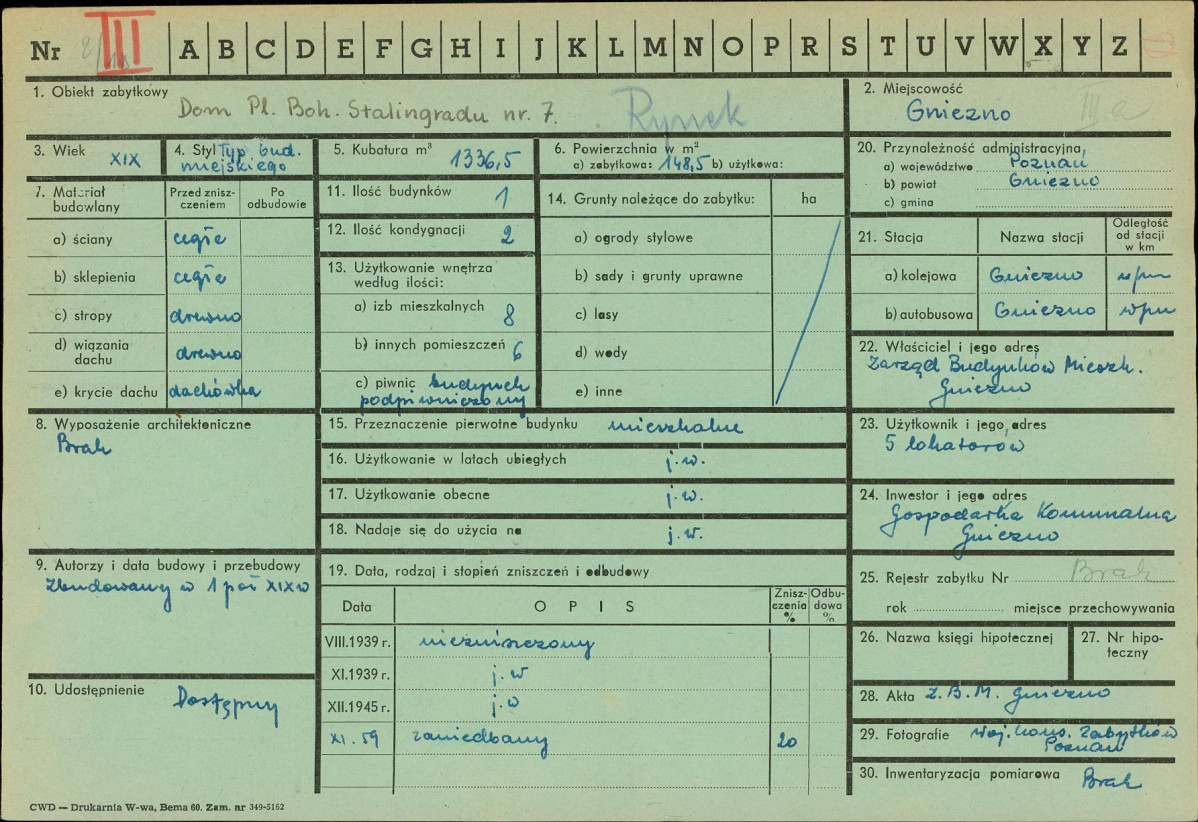 Nr III A B C D E F G H I J K L M N O P R S T U V W X Y Z
1. Obiekt zabytkowy Dom Pl. Boh. Stalingradu nr. 7. Rynek
2. Miejscowość
Gniezno III a
3. Wiek XIX
4. Styl Typ bud.
miejskiego
5. Kubatura m³ 1336,5
6. Powierzchnia w m²
a) zabytkowa: 148,5 b) użytkowa:
20. Przynależność administracyjna
a) województwo Poznań
b) powiat Gniezno
c) gmina
7. Materiał budowlany
Przed zniszczeniem
Po odbudowie
a) ściany cegła
b) sklepienia cegła
c) stropy drewno
d) wiązania dachu drewno
e) krycie dachu dachówka
11. Ilość budynków 1
12. Ilość kondygnacji 2
13. Użytkowanie wnętrza
według ilości:
a) izb mieszkalnych 8
b) innych pomieszczeń 6
c) piwnic budynek
podpiwniczony
14. Grunty należące do zabytku: ha
a) ogrody stylowe
b) sady i grunty uprawne
c) lasy
d) wody
e) inne
21. Stacja Nazwa stacji
Odległość
od stacji
w km
a) kolejowa Gniezno
b) autobusowa Gniezno
22. Właściciel i jego adres
Zarząd Budynków Mieszk.
Gniezno
8. Wyposażenie architektoniczne
Brak
15. Przeznaczenie pierwotne budynku mieszkalne
16. Użytkowanie w latach ubiegłych j.w.
17. Użytkowanie obecne j.w.
18. Nadaje się do użycia na j.w.
23. Użytkownik i jego adres
5 lokatorów
24. Inwestor i jego adres
Gospodarka Komunalna
Gniezno
9. Autorzy i data budowy i przebudowy
Zbudowany w 1 poł XIX w
19. Data, rodzaj i stopień zniszczeń i odbudowy
Data OPIS
Zniszczenia %
Odbudowa %
VIII.1939 r. niezniszczony
XI.1939 r. j.w
XII.1945 r. j.w
XI.59 zaniedbany 20
25. Rejestr zabytku Nr Brak
rok miejsce przechowywania
26. Nazwa księgi hipotecznej
27. Nr hipoteczny
10. Udostępnienie Dostępny
28. Akta Z.B.M. Gniezno
29. Fotografie Woj. Kons. Zabytków
Poznań
30. Inwentaryzacja pomiarowa Brak
CWD — Drukarnia W-wa, Bema 60. Zam. nr 349-5162